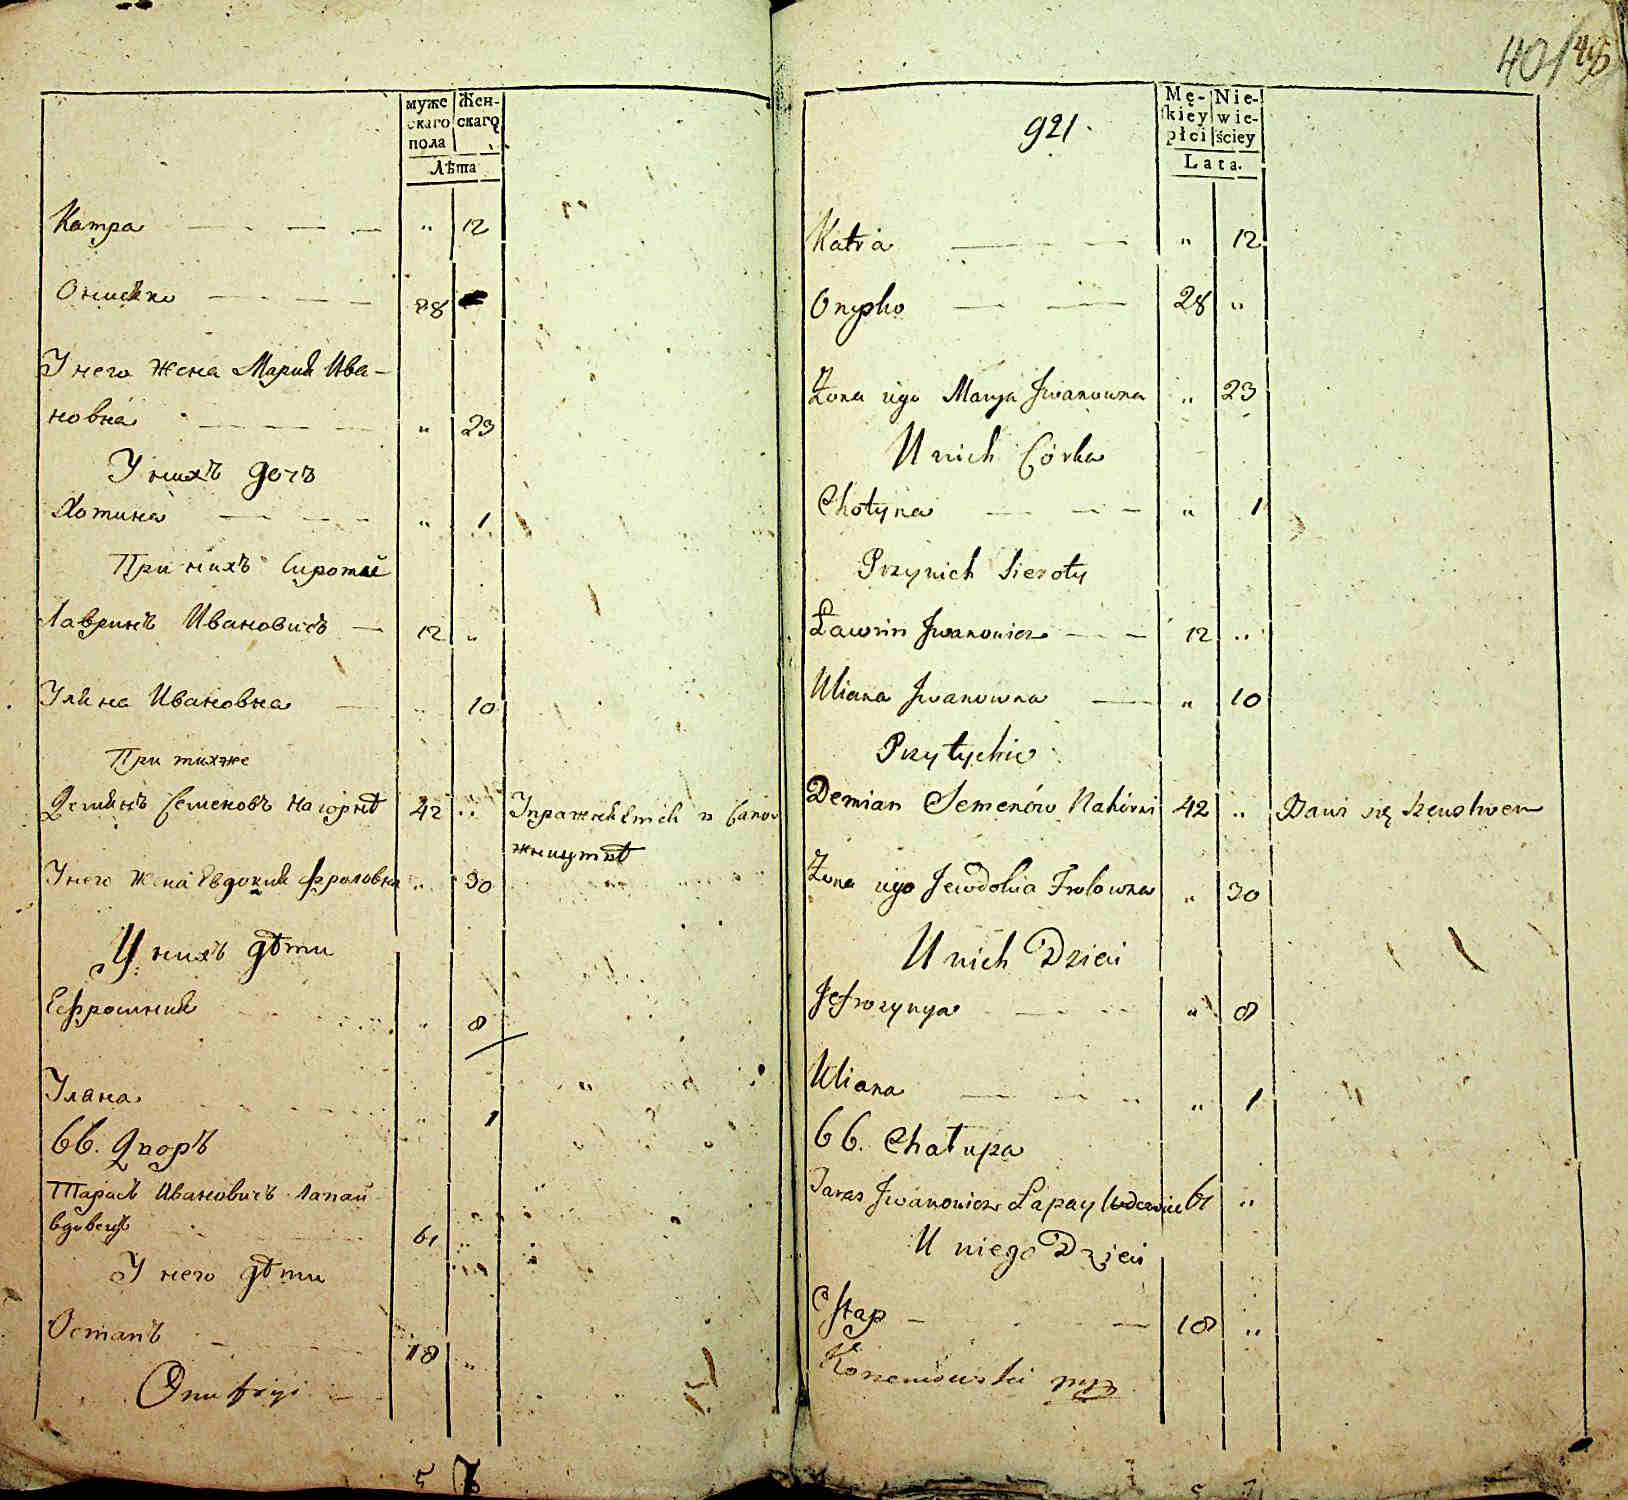 муже
скаго
пола
Жен-
скаго
Лѣта
Катра " 12
Онишко 28
У него жена Мария Ива-
новна " 23
У нихъ дочъ
Хотина " 1
При нихъ Сироты
Лавринъ Ивановичъ 12 "
Уляна Ивановна " 10
При тихже
Демянъ Семеновъ Нагорнѣ 42 "
У него жена Евдокия Фроловна " 30
У нихъ дѣти
Ефросиния " 8
Уляна " 1
66. Дворъ
Тарасъ Ивановичъ Лапай
вдовецъ 61 "
У него дѣти
Остапъ 18 "
Onufryi
5 7
40/
921.
Mę-
skiey
płci
Nie-
wie-
ściey
Lata.
Katra " 12
Onyszko 28 "
Żona iego Marya Jwanowna " 23
U nich Córka
Chotyna " 1
Przy nich Sieroty
Ławrin Jwanowicz 12 "
Uliana Jwanowna " 10
Przy tychże
Demian Semenów Nahórni 42 " Bawi się
Żona iego Jewdokia Frolowna " 30
U nich Dzieci
Jefrozynya " 8
Uliana " 1
66. Chałupa
Taras Jwanowicz Łapay Wdowiec 61 "
U niego Dzieci
Ostap 18 "
Korzeniowski mp